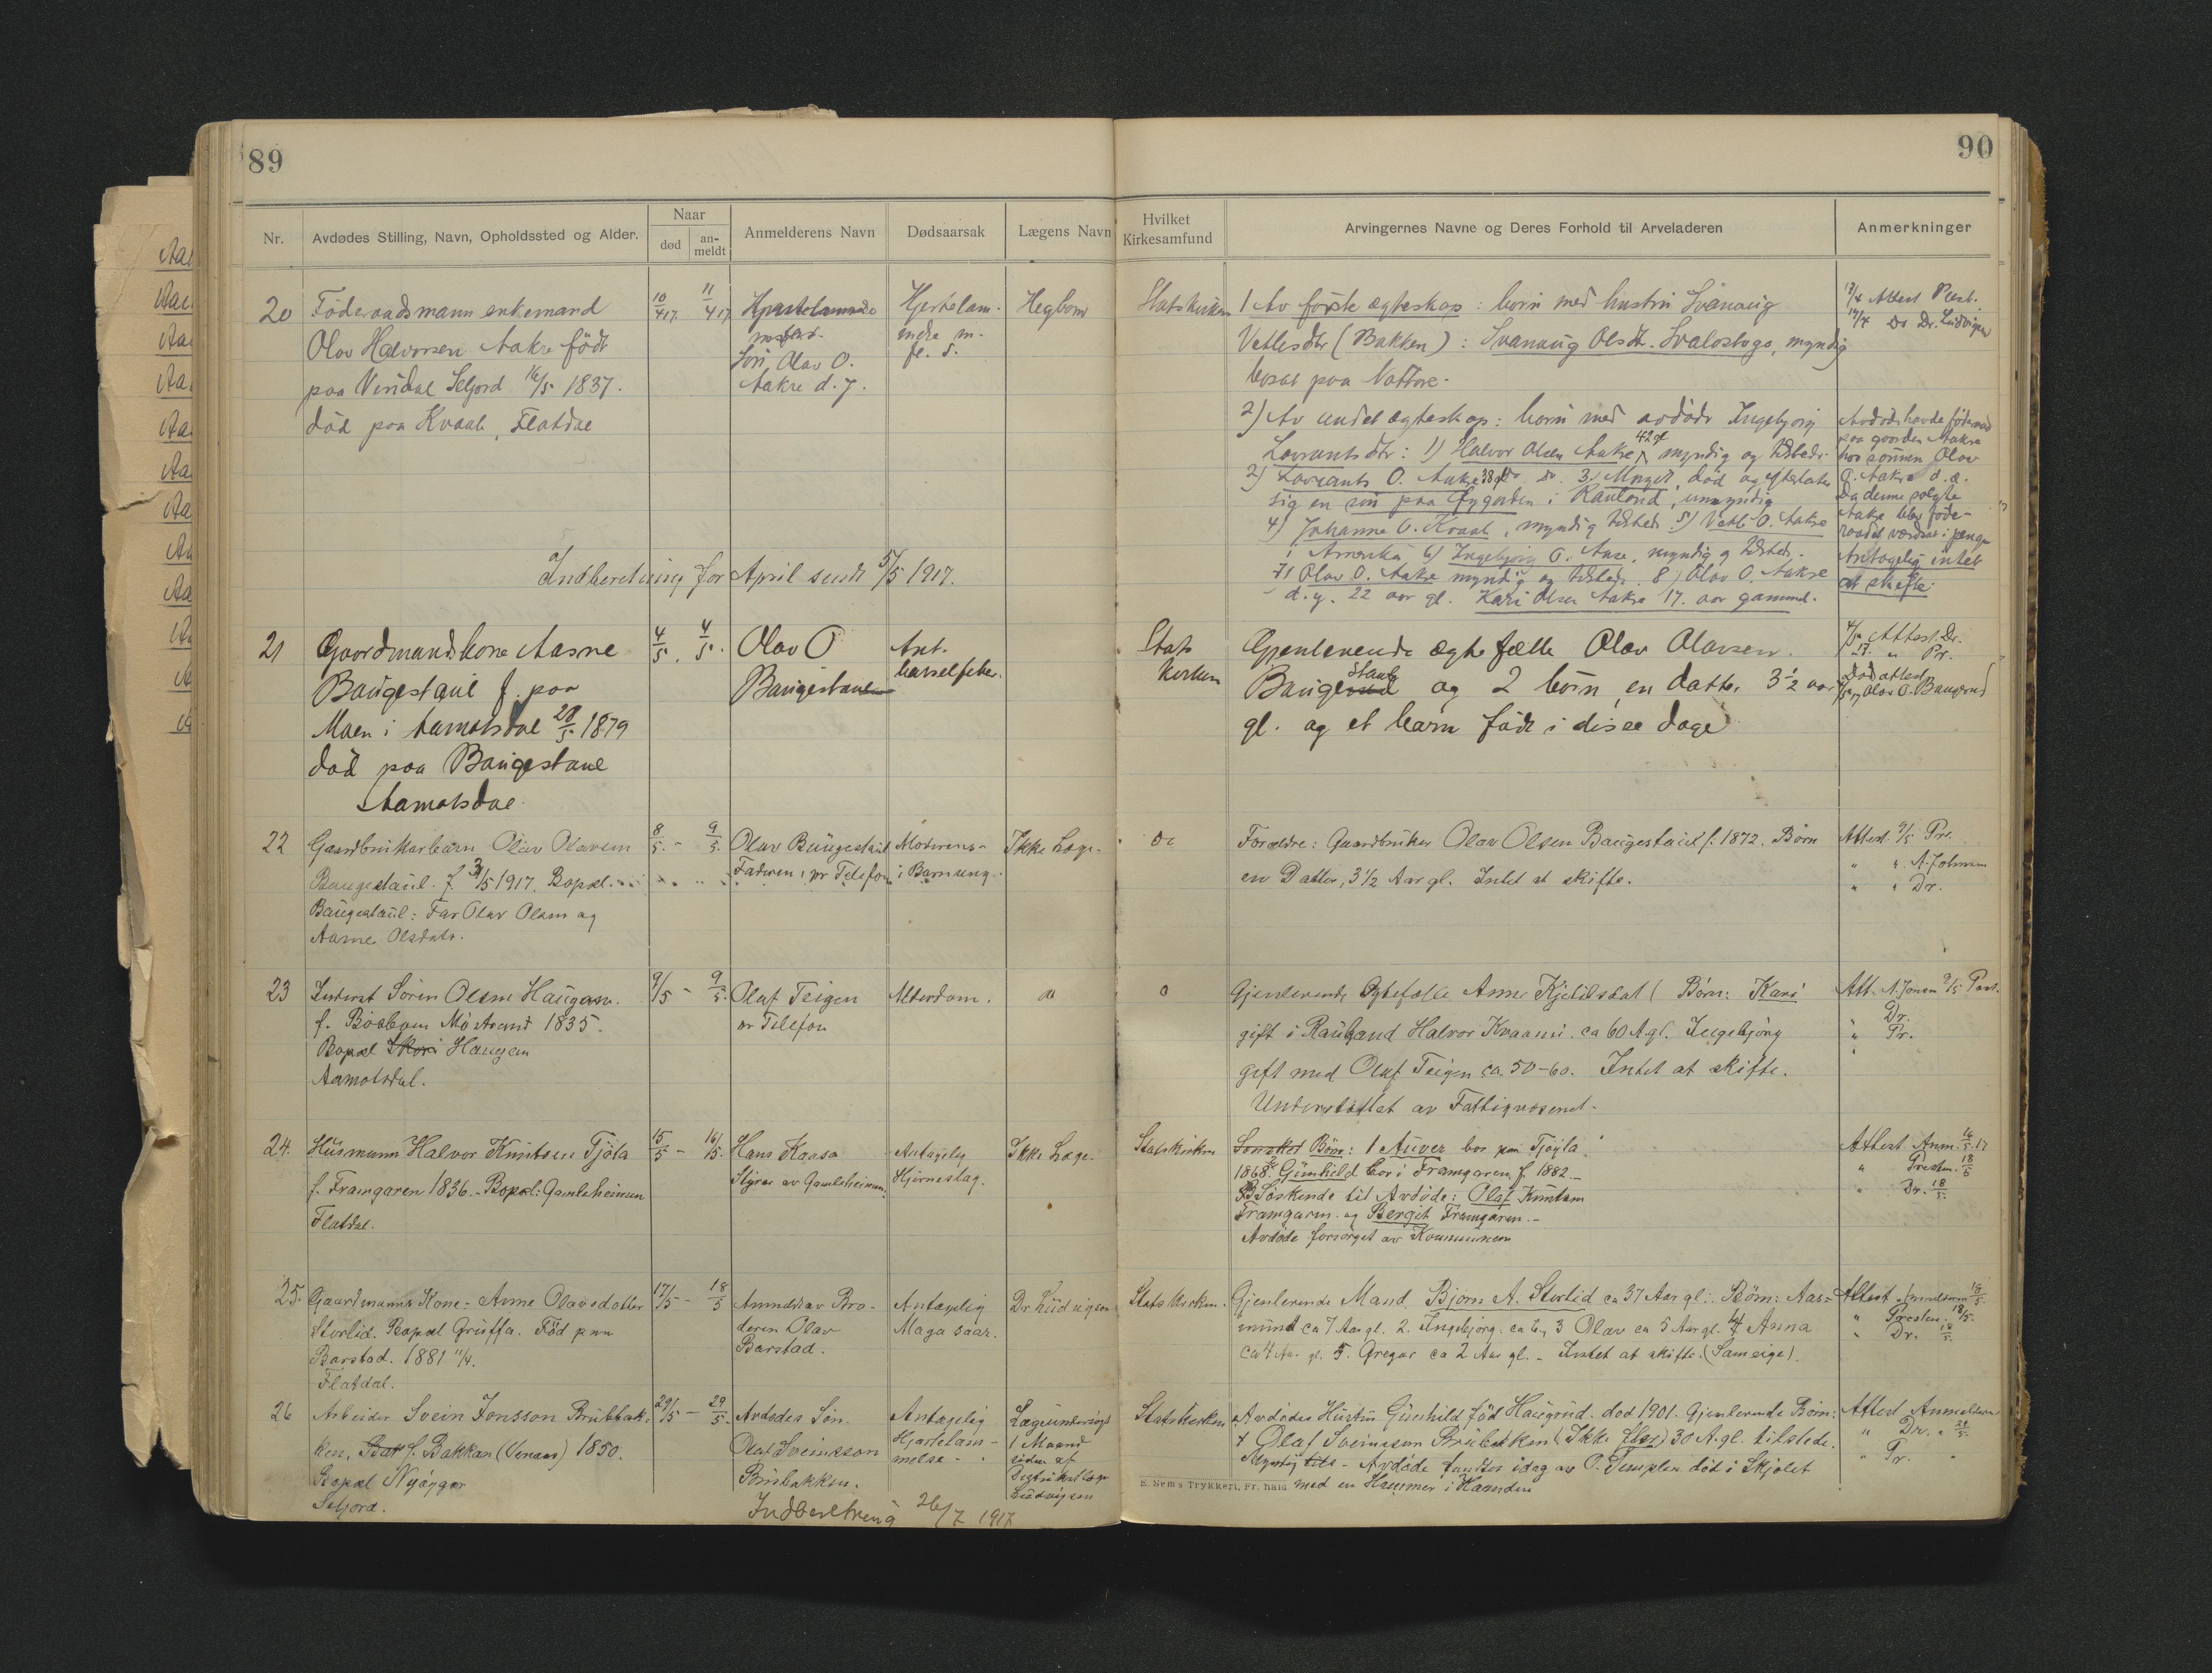 89
90
Nr.
Avdødes Stilling, Navn, Opholdssted og Alder.
Naar
død
an-
meldt
Anmelderens Navn
Dødsaarsak
Lægens Navn
Hvilket
Kirkesamfund
Arvingernes Navne og Deres Forhold til Arveladeren
Anmerkninger
20
Föderaadsmann enkemand
Olav Halvorsen Aakre født
paa Seljord 16/5 1837.
død paa Kvaale, Flatdal
10/4 17.
11/4 17
Sön Olav O.
Aakre d. y.
Hjertelam-
melse m.
fl. s.
Hegbom
Statskirken
1 Av förste ægteskap: born med hustru Svanaug
Vetlesdtr (Bakken): Svanaug Olsdtr. Svalestoga, myndig
bosat paa
2) Av andet ægteskap: born med avdöde Ingebjorg
Lavrantsdtr: 1) Halvor Olsen Aakre 42 gl myndig og tilstede
2) Lavrants O. Aakre 38 gl do do. 3) død og efterlater
sig en sön paa Öygarden i Rauland, umyndig
4) Johanne O. Kvaale, myndig tilsted. 5) Vetle O. Aakre
i Amerika 6) Ingebjorg O. Aase, myndig og tilsted.
7) Olav O. Aakre myndig og tilstede. 8) Olav O. Aakre
d. y. 22 aar gl. Kari Olsen Aakre 17. aar gammel.
17/4 Attest Prest.
17/4 Do Dr. Ludvigsen
Avdöde havde föderaad
paa gaarden Aakre
hos sönnen Olav
O. Aakre d. e.
Da denne solgte
Aakre blev föde-
raadet værdsat i penger
Antagelig intet
at skifte.
Indberetning for April sendt 5/5 1917.
21
Gaardmandskone Aasne
Baugestaul f. paa
Moen i Aamotsdal 28/5 1879
död paa Baugestaul
Aamotsdal.
4/5.
4/5.
Olav O
Baugestaul
Ant.
barselfeber.
Stats
kirken
Gjenlevende ægtefælle Olav Olavsen
Baugestaul og 2 börn, en datter 3½ aar
gl. og et barn födt i disse dage
4/5 Attest. Dr.
" 17. " Pr.
Dödattest
Olav O. Baugerud
22
Gaardbrukerbarn Olav Olavsen
Baugestaul. f. 3/5 1917. Bopæl
Baugestaul: Far Olav Olsen og
Aasne Olsdatr.
8/5. -
9/5.
Olav Baugestaul
Faderen, pr Telefon
Moderens
i Barnseng.
Ikke Læge.
do
Forældre: Gaardbruker Olav Olsen Baugestaul f. 1872. Børn
en Datter, 3½ Aar gl. Intet at skifte.
Attest 9/5 Pr.
" " A. Johnsen
" " Dr.
23
Inderst Sören Olsen Haugan.
f. Mösstrand 1835.
Bopæl Haugan
Aamotsdal.
9/5 -
9/5.
Olaf Teigen
pr Telefon
Alderdom.
do
Gjenlevende Ægtefælle Anne Kjetilsdat ( Børn: Kari
gift i Rauland Halvor Kvaani. ca 60 A gl. Ingebjörg
gift med Olaf Teigen ca. 50-60. Intet at skifte.
Understöttet av Fattigvæsenet.
Att. A. Jonsen 9/5
" Dr.
" Pr.
24.
Husmann Halvor Knutsen Tjöla
f. Framgaren 1836. - Bopæl: Gamleheimen
Flatdal.
15/5 -
16/5.
Hans Kaasa
Styrer av Gamleheimen.
Antagelig
Hjerneslag.
Ikke Læge.
Statskirken
Børn: 1 bor paa Tjoyla
1868. 2 Gunhild bor i Framgaren f. 1882.-
Söskende til Avdöde: Olaf Knutsen
Framgaren. og Bergit Framgaren.-
Avdöde forsörget av Kommunen
Attest Anm. 16/5. 17
" Presten. 18/5
" Dr. 18/5.
25.
Gaardmanns Kone: Anne Olavsdatter
Storlid. Bopæl Gruffa. Född paa
Barstad. 1881 11/4.
Flatdal.
17/5 -
18/5
Anmeldt av Bro-
deren Olav
Barstad.
Antagelig
Mage saar.
Dr Ludvigsen
Stats kirken.
Gjenlevende Mand Bjorn A. Storlid ca 37 Aar gl. Börn: Aas=
mund ca 7 Aar gl. 2. Ingebjörg. ca 6, 3 Olav ca 5 Aar gl. 4 Anna
ca 4 Aar gl. 5. Gregar ca 2 Aar gl. - Intet at skifte. (Sameige).
Attest Anmelderen 18/5.
" Presten. 18/5.
" Dr. 18/5.
26
Arbeider Svein Jonsson Brubbak-
ken, f. Bakkan 1850.
Bopæl Nyöygar
Seljord.
29/5 -
29/5.
Avdödes Sön
Olaf Sveinsson
Brubakken.
Antagelig
Hjertelam-
melse -
Lægeundersögt
1 Maaned
siden af
Distriktslæge
Ludvigsen
Statskirken
Avdödes Hustru Gunhild född Haugrud. död 1901. Gjenlevende Börn:
1 Olaf Sveinsson Brubakken 30 A. gl. tilstede.
Myndig - Avdöde fundtes idag av O. Templen död i Skjolet
med en Hammer i Haanden
Attest Anmelderen
" Dr. " 29/5.
" Pr. "
E. Sem's Trykkeri, Fr. hald
Indberetning 26/7 1917